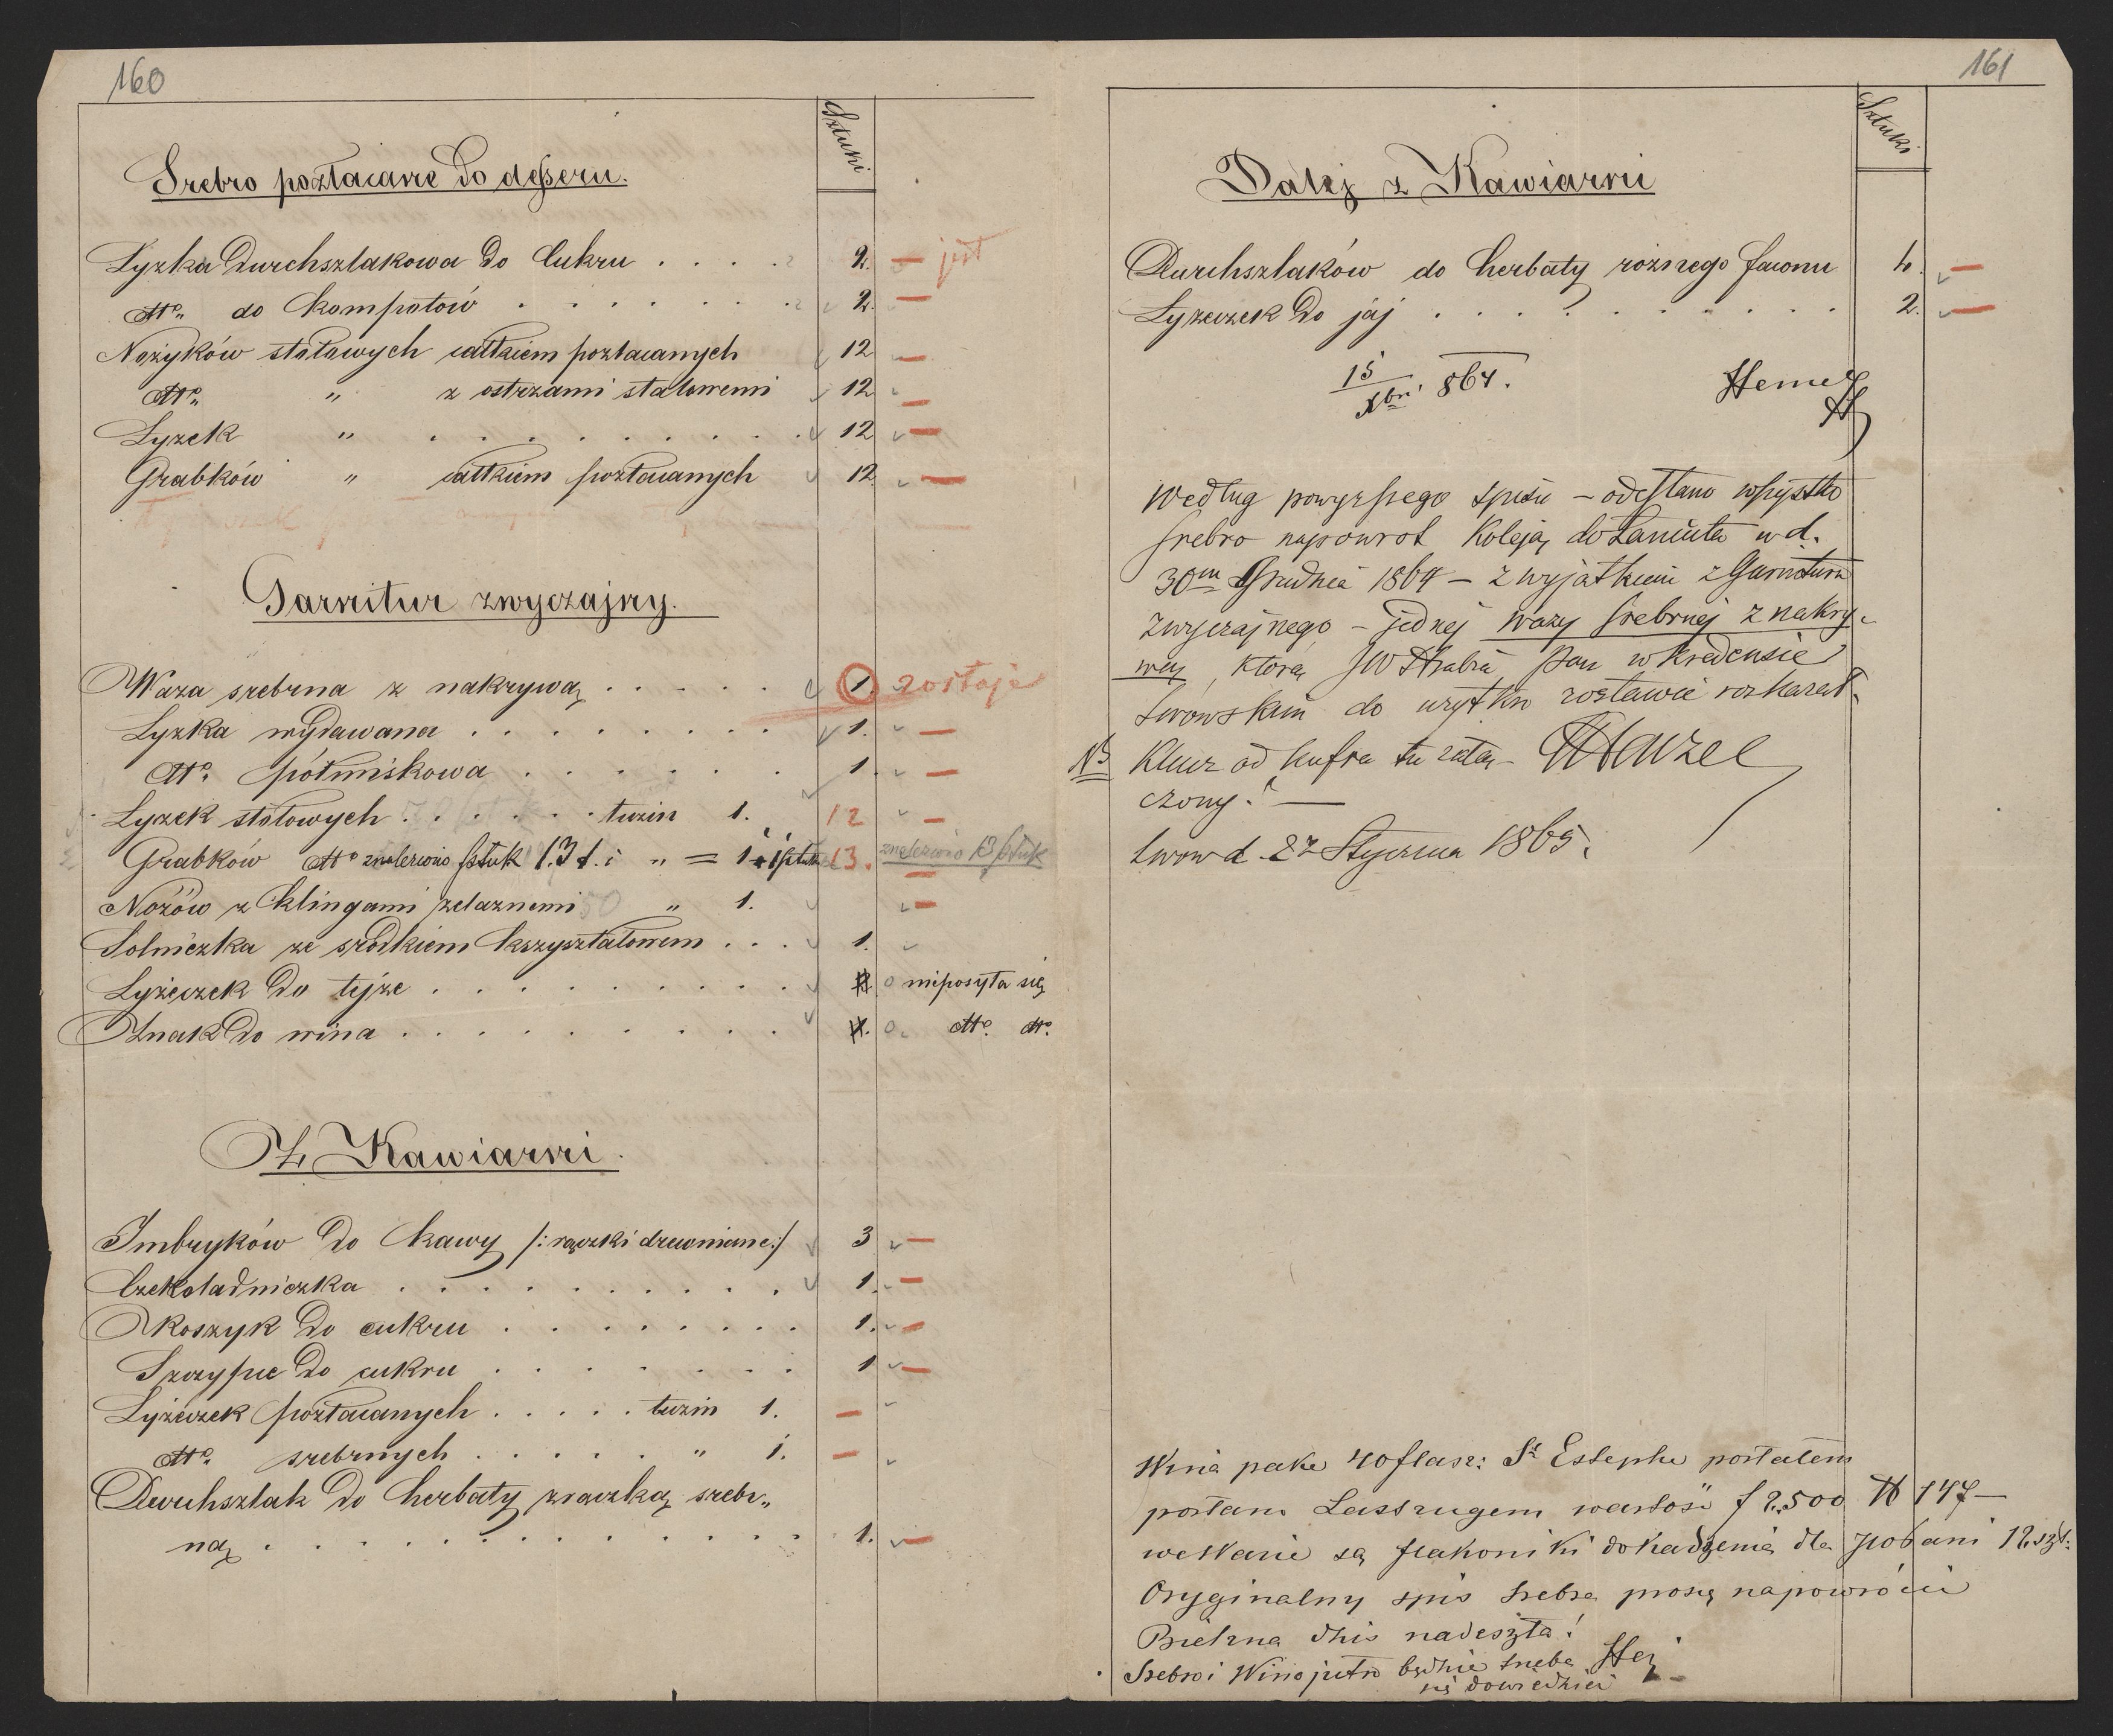 160
Sztuki
Srebro pozłacane do desseru.
Lyzka Durchszlakowa do Cukru . . . . 2. — jest
dtto „ do Kompotów . . . . . . . 2. —
Nożyków stołowych całkiem pozłacanych 12 —
dtto „ „ z ostrzami stalowemi 12 —
Lyzek „ . . . . . . . . 12 —
Grabków „ całkiem pozłacanych 12. —
Garnitur zwyczajny.
Waza srebrna z nakrywą . . . . . 1. zostaje
Lyzka wydawana . . . . . . . . 1. —
dtto „ półmiskowa . . . . . . 1. —
Lyzek stołowych . . . . . . tuzin 1. 12 —
Grabków dtto znaleziono sztuk 13 „ = 1 + 1 sztuk 13. znaleziono 13 sztuk
Nożów z klingami zelaznemi „ 1. —
Solniczka ze srodkiem kszyształowem . . . 1.
Lyżeczek do tejze . . . . . . . . . o nieposyła się
Znak do wina . . . . . . . . . . o. dtto. dtto.
Z, Kawiarni.
Imbryków do kawy /: rączki drewniane :/ 3 —
Czekoladniczka . . . . . . . . . 1. —
Koszyk do cukru . . . . . . . . 1. —
Szczypce do cukru . . . . . . . 1 —
Lyżeczek pozłacanych . . . . . tuzin 1. —
dtto „ srebrnych . . . . . . „ 1. —
Durchszlak do herbaty z rączką srebr„
ną . . . . . . . . . . . . 1. —
161
Sztuki
Dalej z Kawiarni
Durchszlaków do herbaty rożnego faconu 4. —
Lyzeczek do jaj . . . . . . . . . . 2. —
15/Xbri 864.
Według powyzszego spisu — odesłano wszystko
srebro napowrot Koleją do Łancuta w d.
30m Grudnia 1864 — z wyjątkiem z Garnituru
zwyczajnego — jednej wazy srebrnej z nakry-
wą, którą JW Hrabia Pan w kredensie
Lwowskim do uzytku zostawić rozkazał.
NB Klucz od kufra tu załą-
czony. —
Lwow d. 27 Stycznia 1865.
Wina pakę 40 flasz: St Estephe posłałem
wartość f 2.500 147 —
są flakoniki do kadzenia dla 12 szt:
Oryginalny spis srebra proszę napowrócić
dziś nadeszła!
Srebro i Wino jutro będzie trzeba
się dowiedzieć